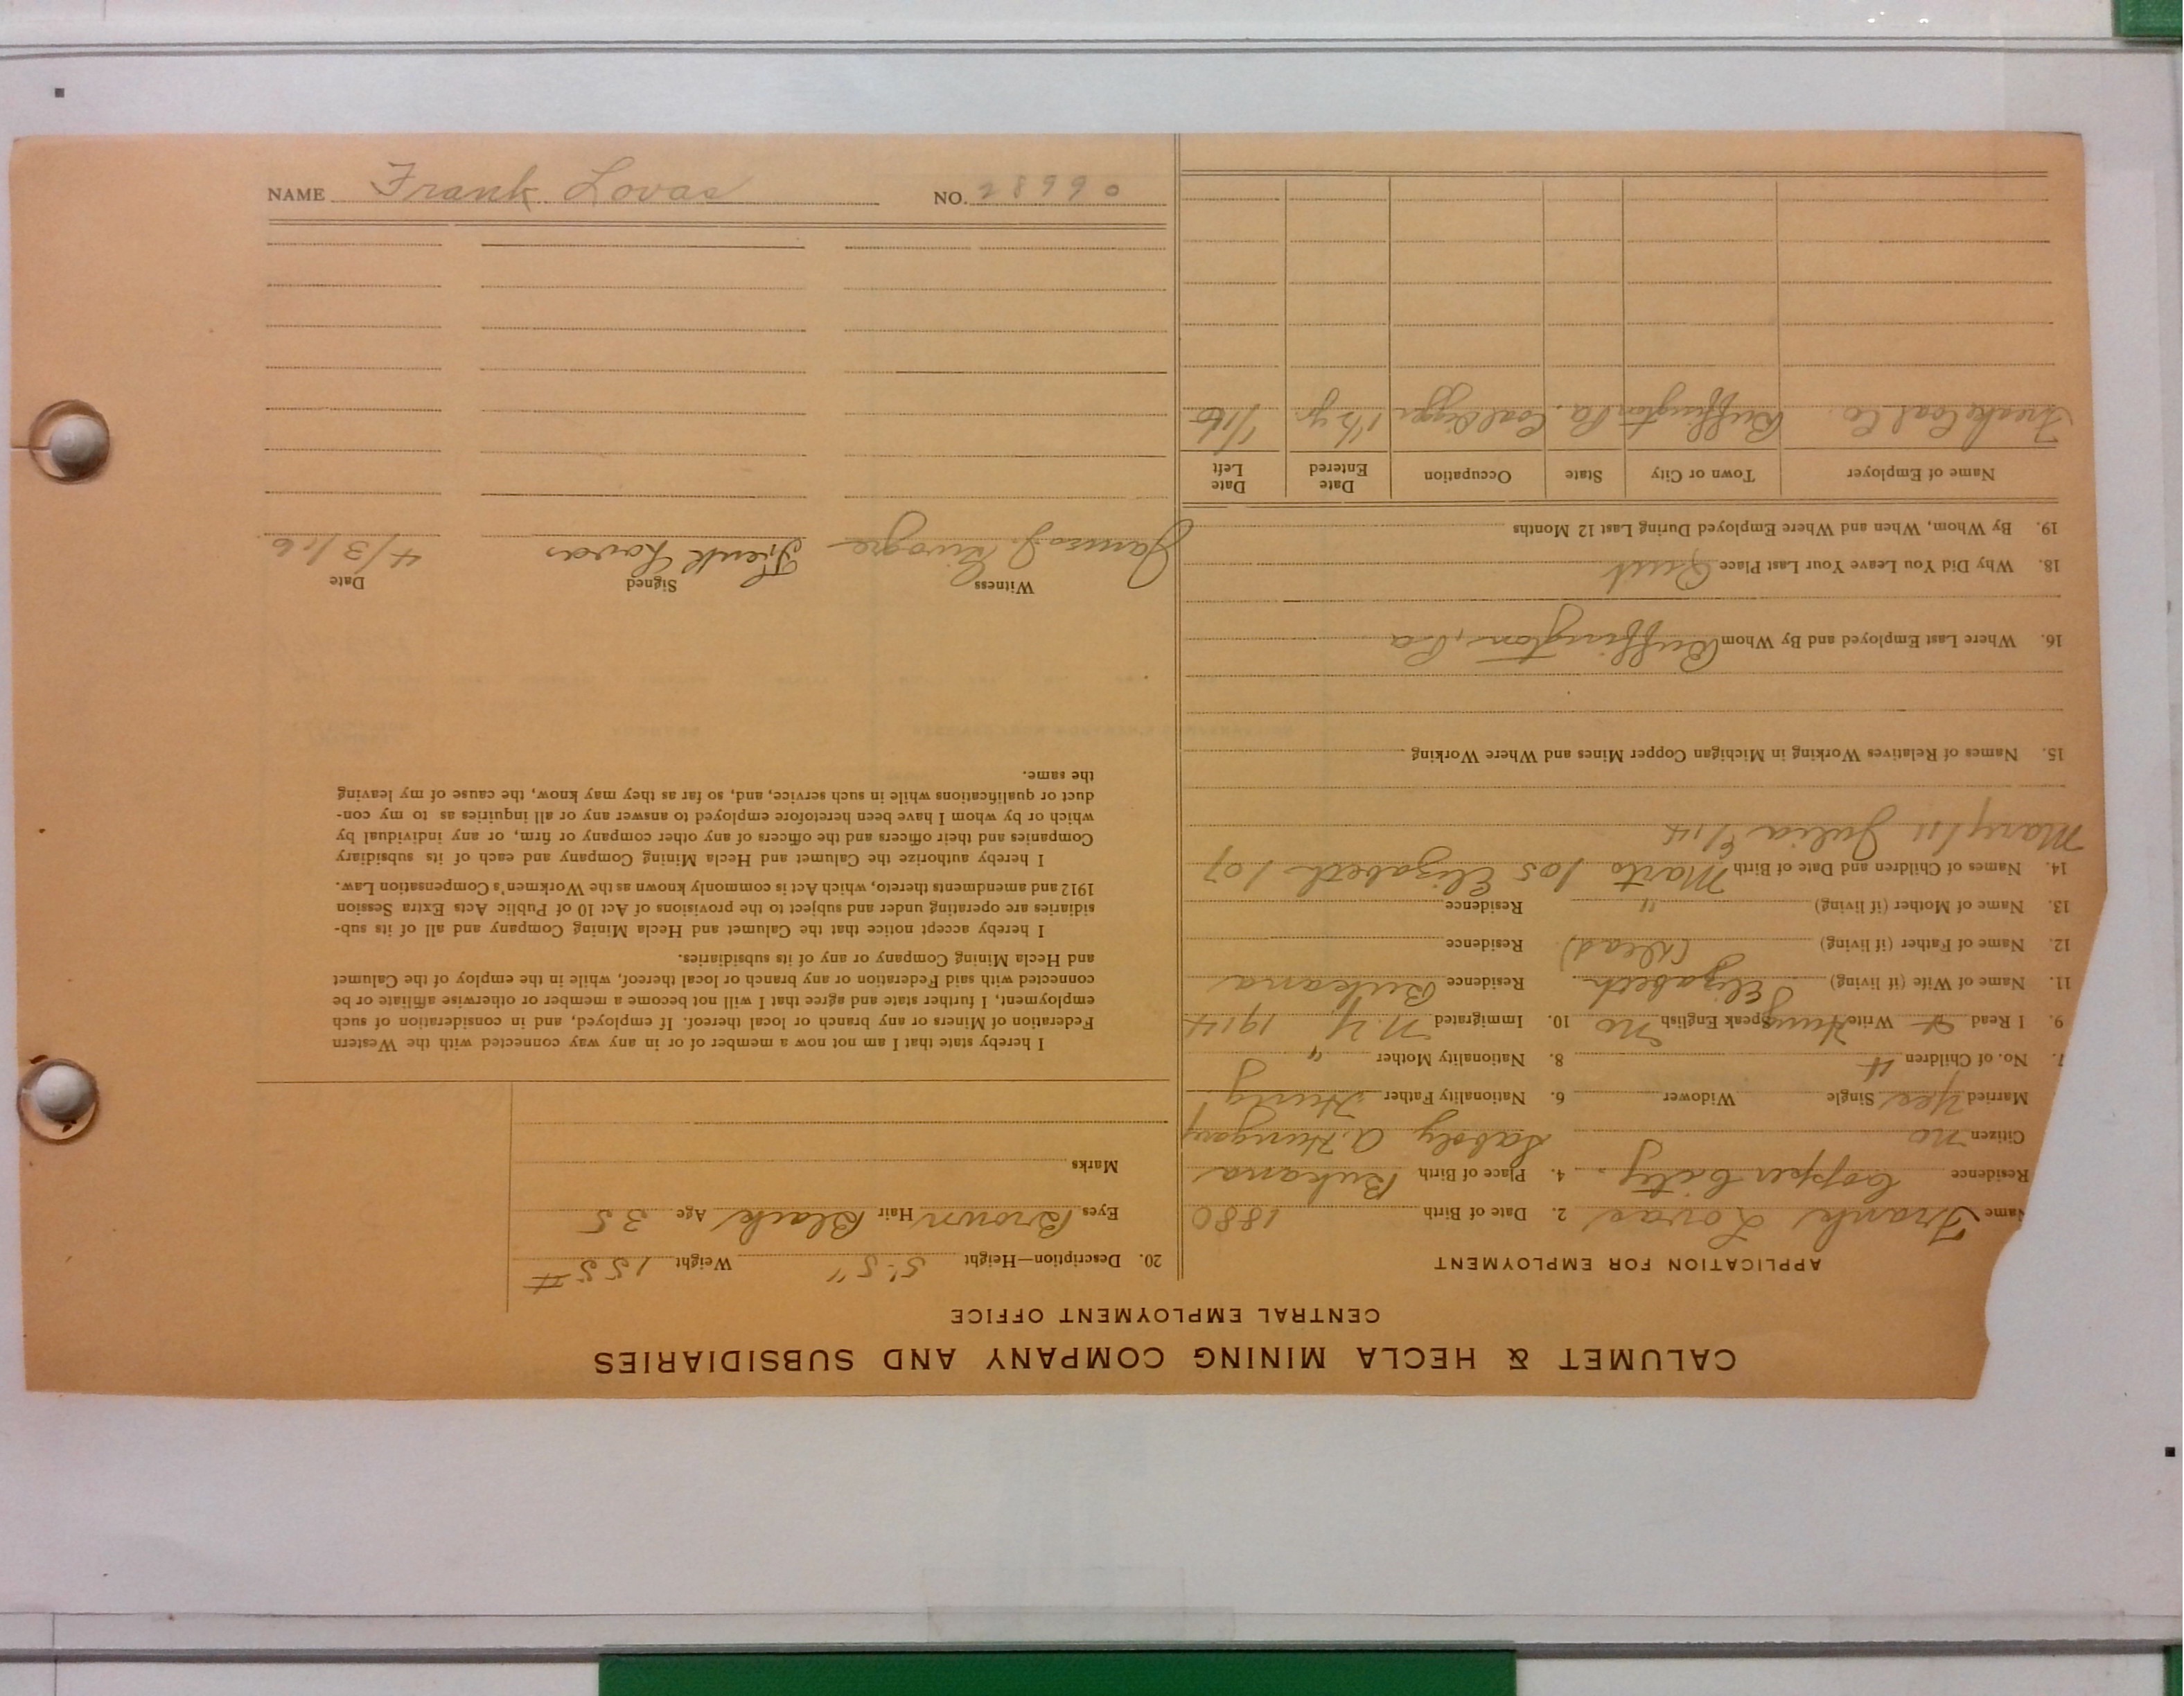 CALUMET & HECLA MINING COMPANY AND SUBSIDIARIES
CENTRAL EMPLOYMENT OFFICE
APPLICATION FOR EMPLOYMENT
Name Frank Lovas 2. Date of Birth 1880
Residence Copper City. 4. Place of Birth Bukana
Citizen no Saboly A. Hungary
Married Yes Single Widower 6. Nationality Father Hung
7. No. of Children 4 8. Nationality Mother "
9. I Read & Write Hung Speak English no 10. Immigrated N.Y 1914
11. Name of Wife (if living) Elizabeth Residence Bukana
12. Name of Father (if living) (Dead) Residence
13. Name of Mother (if living) " Residence
14. Names of Children and Date of Birth Marto /05 Elizabeth /07
Mary /11 Julia /14
15. Names of Relatives Working in Michigan Copper Mines and Where Working
16. Where Last Employed and By Whom Buffington, Pa
18. Why Did You Leave Your Last Place Quit
19. By Whom, When and Where Employed During Last 12 Months
Name of Employer Town or City State Occupation Date Entered Date Left
Coal Co. Buffington Pa. Coal Digger 1½ yr 1/16
20. Description—Height 5'-5" Weight 155 #
Eyes Brown Hair Black Age 35
Marks
I hereby state that I am not now a member of or in any way connected with the Western
Federation of Miners or any branch or local thereof. If employed, and in consideration of such
employment, I further state and agree that I will not become a member or otherwise affiliate or be
connected with said Federation or any branch or local thereof, while in the employ of the Calumet
and Hecla Mining Company or any of its subsidiaries.
I hereby accept notice that the Calumet and Hecla Mining Company and all of its sub-
sidiaries are operating under and subject to the provisions of Act 10 of Public Acts Extra Session
1912 and amendments thereto, which Act is commonly known as the Workmen's Compensation Law.
I hereby authorize the Calumet and Hecla Mining Company and each of its subsidiary
Companies and their officers and the officers of any other company or firm, or any individual by
which or by whom I have been heretofore employed to answer any or all inquiries as to my con-
duct or qualifications while in such service, and, so far as they may know, the cause of my leaving
the same.
Witness Signed Date
James J. Frenk Lovas 4/3/16
NAME Frank Lovas NO. 28990